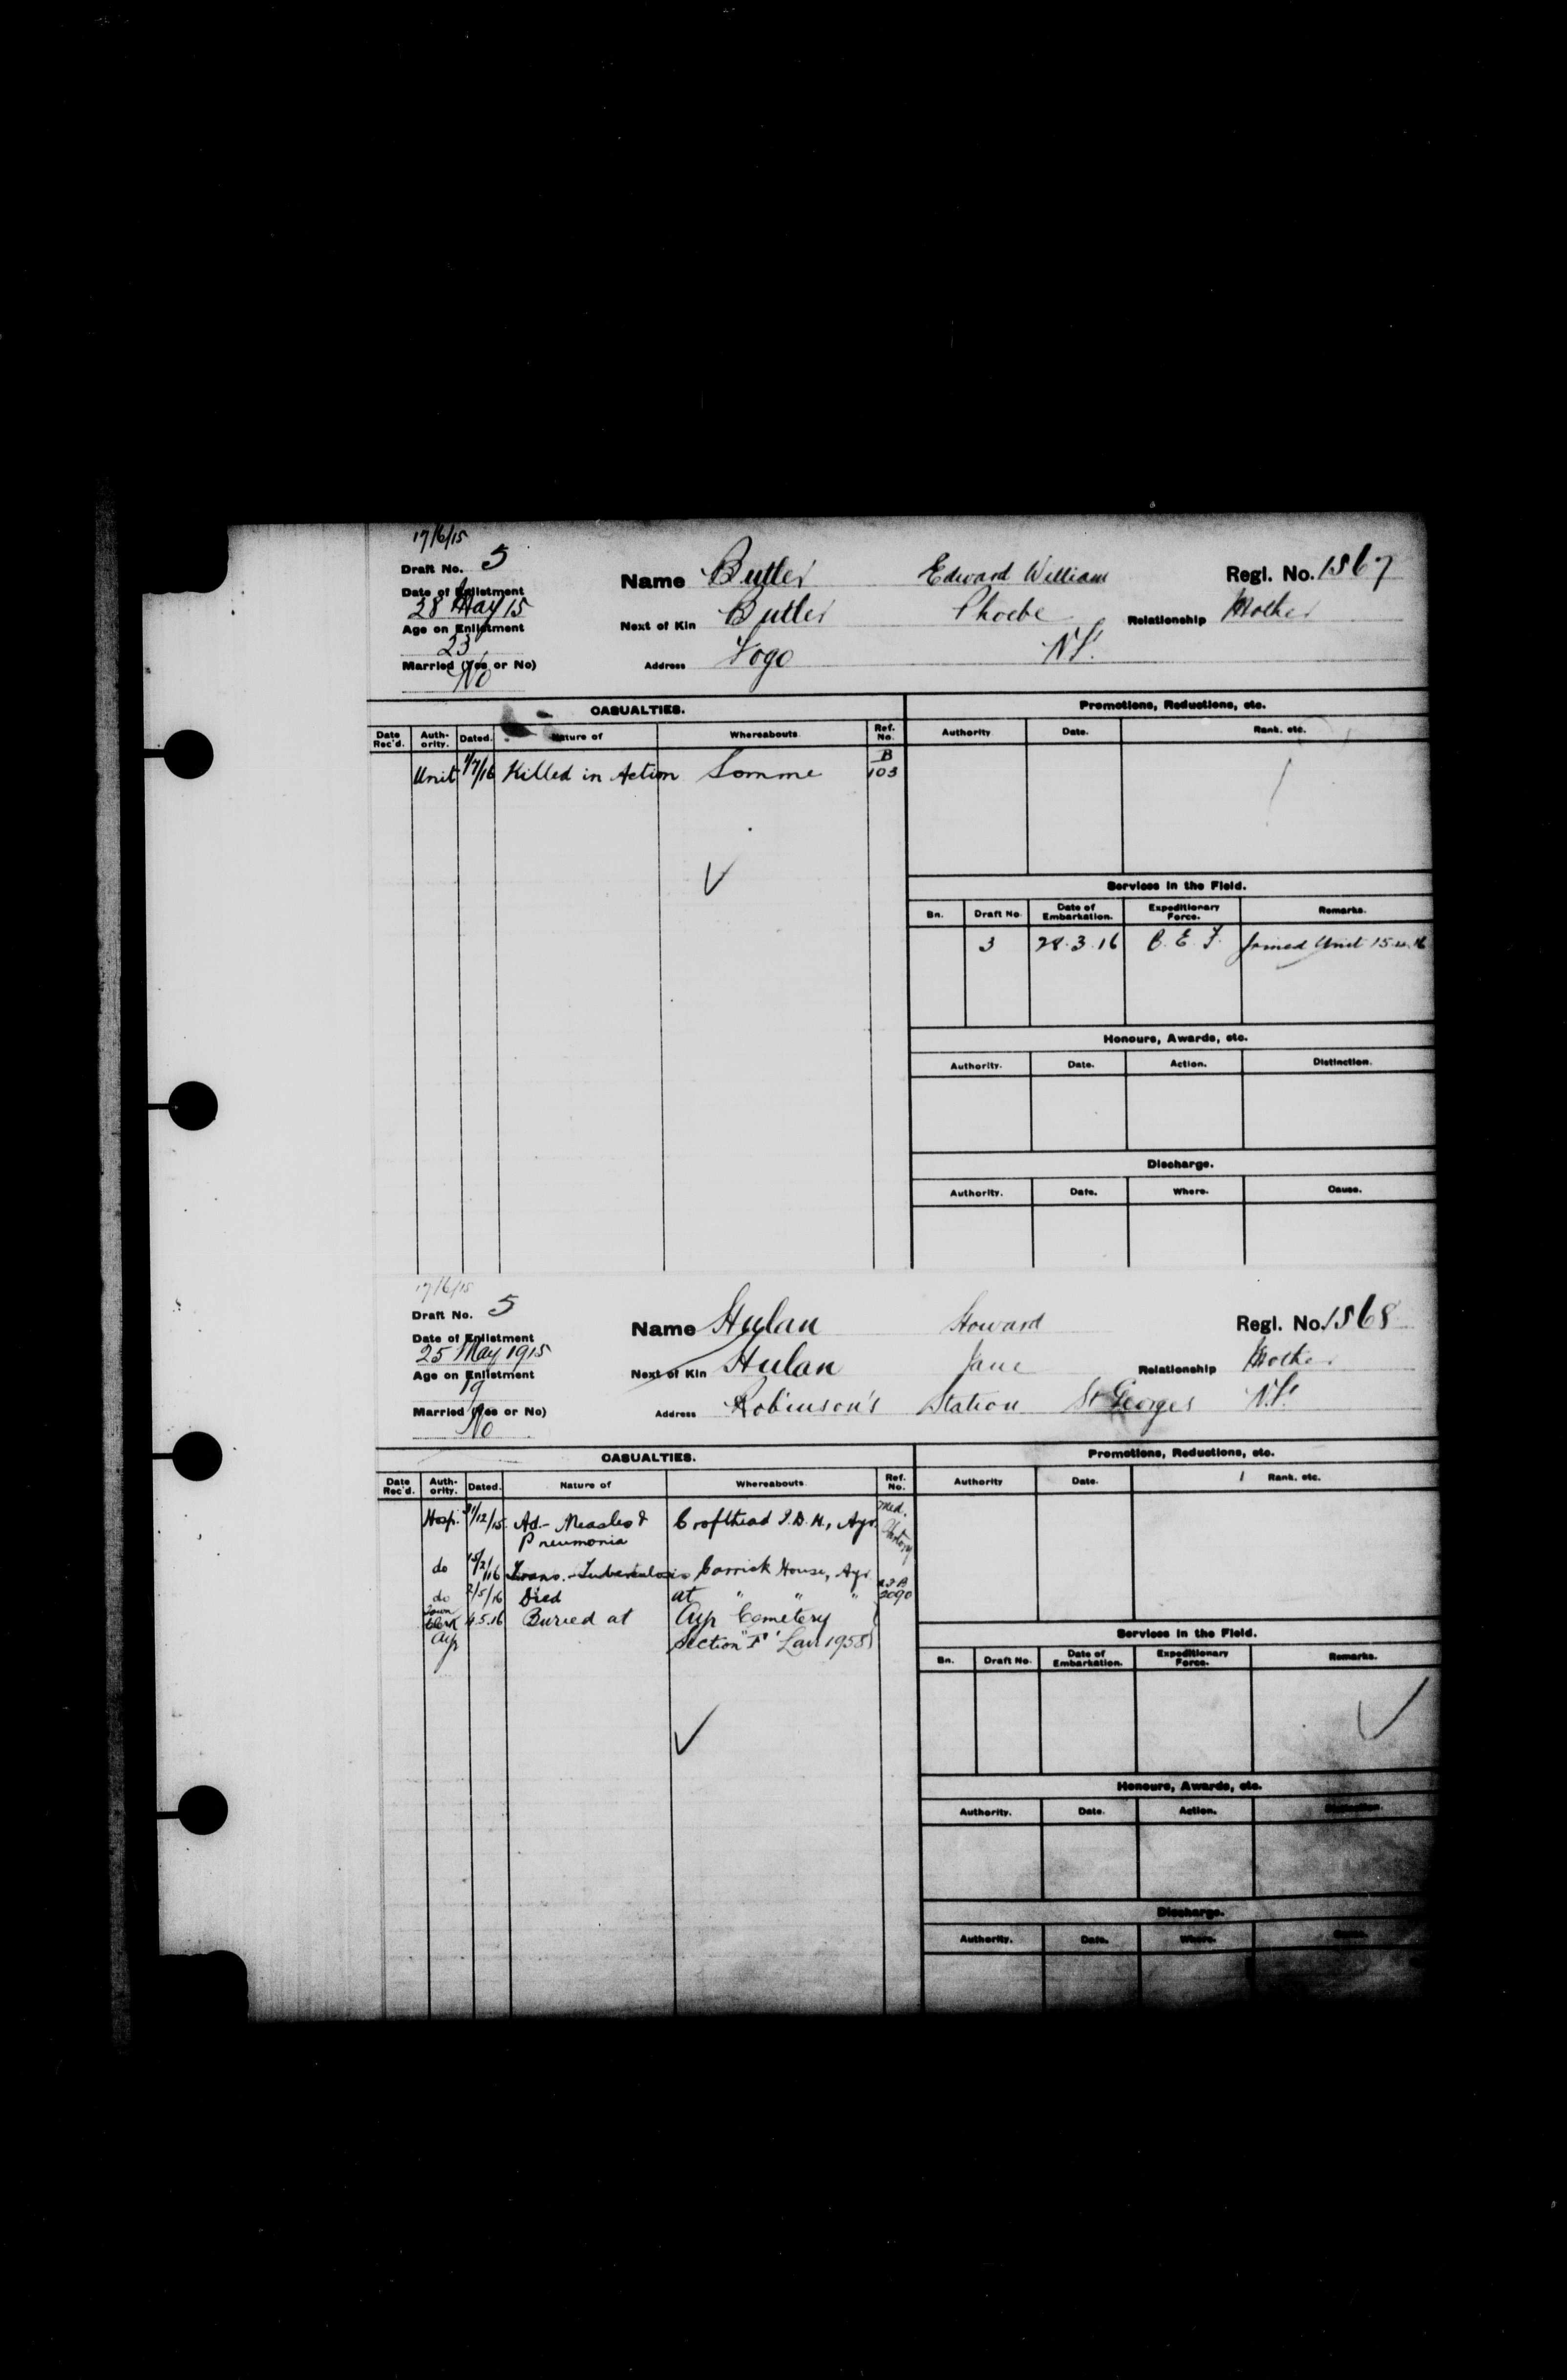 17/6/15
Draft No. 5
Name Butler Edward William Regl. No. 1567
Date of Enlistment
28 May 15
Next of Kin Butler Phoebe Relationship Mother
Age on Enlistment
23
Address Fogo Nfl.
Married (Yes or No)
No
CASUALTIES. Promotions, Reductions, etc.
Date Rec'd. Auth-ority. Dated. Nature of Whereabouts Ref. No. Authority Date. Rank. etc.
Unit 1/7/16 Killed in Action Somme B 103
Services in the Field.
Bn. Draft No. Date of Embarkation. Expeditionary Force. Remarks.
3 28.3.16 B.E.F. Joined Unit 15.4.16
Honours, Awards, etc.
Authority. Date. Action. Distinction.
Discharge.
Authority. Date. Where. Cause.
17/6/15
Draft No. 5
Name Hulan Howard Regl. No. 1568
Date of Enlistment
25 May 1915
Next of Kin Hulan Jane Relationship Mother
Age on Enlistment
19
Address Robinson's Station St Georges Nfl.
Married (Yes or No)
No
CASUALTIES. Promotions, Reductions, etc.
Date Rec'd. Auth-ority. Dated. Nature of Whereabouts Ref. No. Authority Date. Rank. etc.
Hosp. 31/12/15 Ad.- Measles & Crofthead I.D.H., Ayr. Med. History
Pneumonia
do 15/2/16 Trans. - Tuberculosis Carrick House, Ayr.
do 2/5/16 Died at " " " 2090
Town Clerk Ayr 4.5.16 Buried at Ayr Cemetery
Section "F" Lair 1958
Services in the Field.
Bn. Draft No. Date of Embarkation. Expeditionary Force. Remarks.
Honours, Awards, etc.
Authority. Date. Action. Distinction.
Discharge.
Authority. Date. Where. Cause.